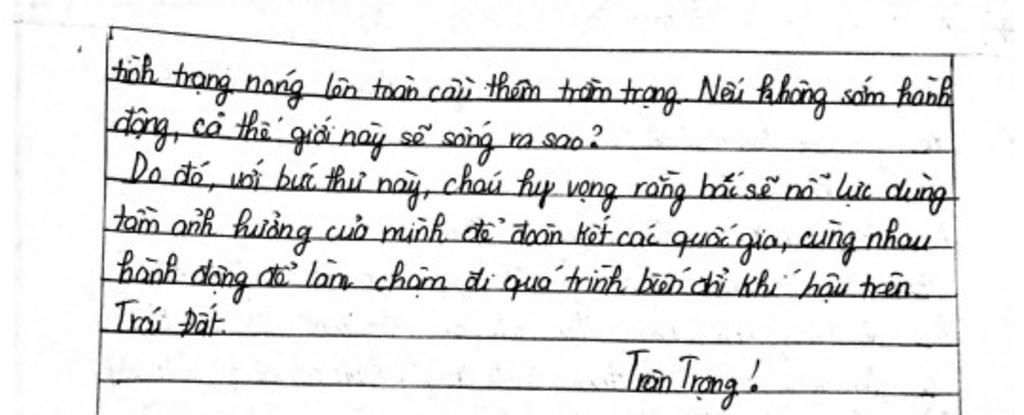 tình trạng nóng lên toàn cầu thêm trầm trọng. Nếu không sớm hành
động, cả thế giới này sẽ sống ra sao?
Do đó, với bức thư này, cháu hy vọng rằng bác sẽ nỗ lực dùng
tầm ảnh hưởng của mình để đoàn kết các quốc gia, cùng nhau
hành động để làm chậm đi quá trình biến đổi khí hậu trên
Trái Đất.
Trân Trọng!